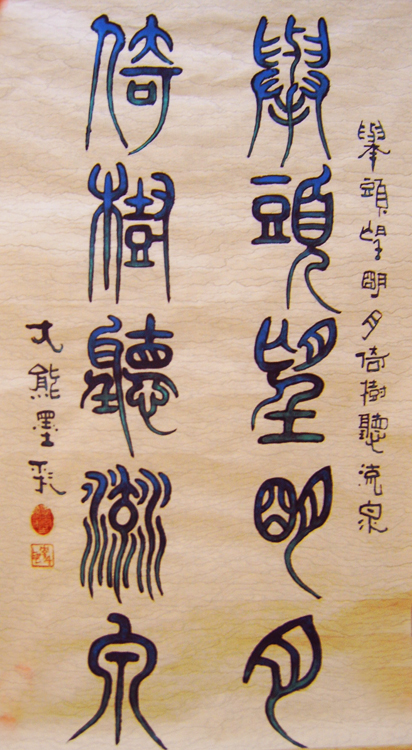 舉頭望明月倚樹聽流泉
舉頭望明月
倚樹聽流泉
熊墨彩